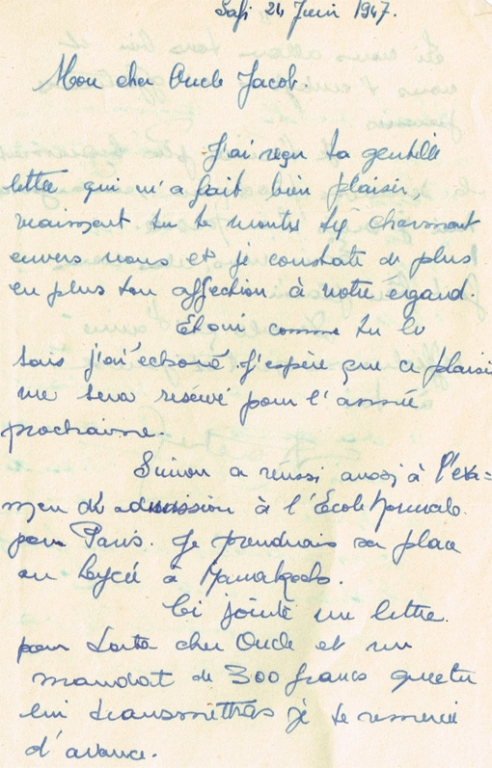 Safi 24 Juin 1947.
Mon cher Oncle Jacob.
J'ai reçu ta gentille
lettre qui m'a fait bien plaisir,
vraiment tu te montres très charmant
envers nous et je constate de plus
en plus ton affection à notre égard.
Et oui comme tu le
sais j'ai échoué. J'espère que ce plaisir
me sera réservé pour l'année
prochaine.
Simon a réussi aussi à l'exa=
men d'admission à l'École Normale
pour Paris. Je prendrais sa place
au Lycée à Marrakech.
Ci joint une lettre
pour cher Oncle et un
mandat de 300 francs que tu
lui transmettras je te remercie
d'avance.